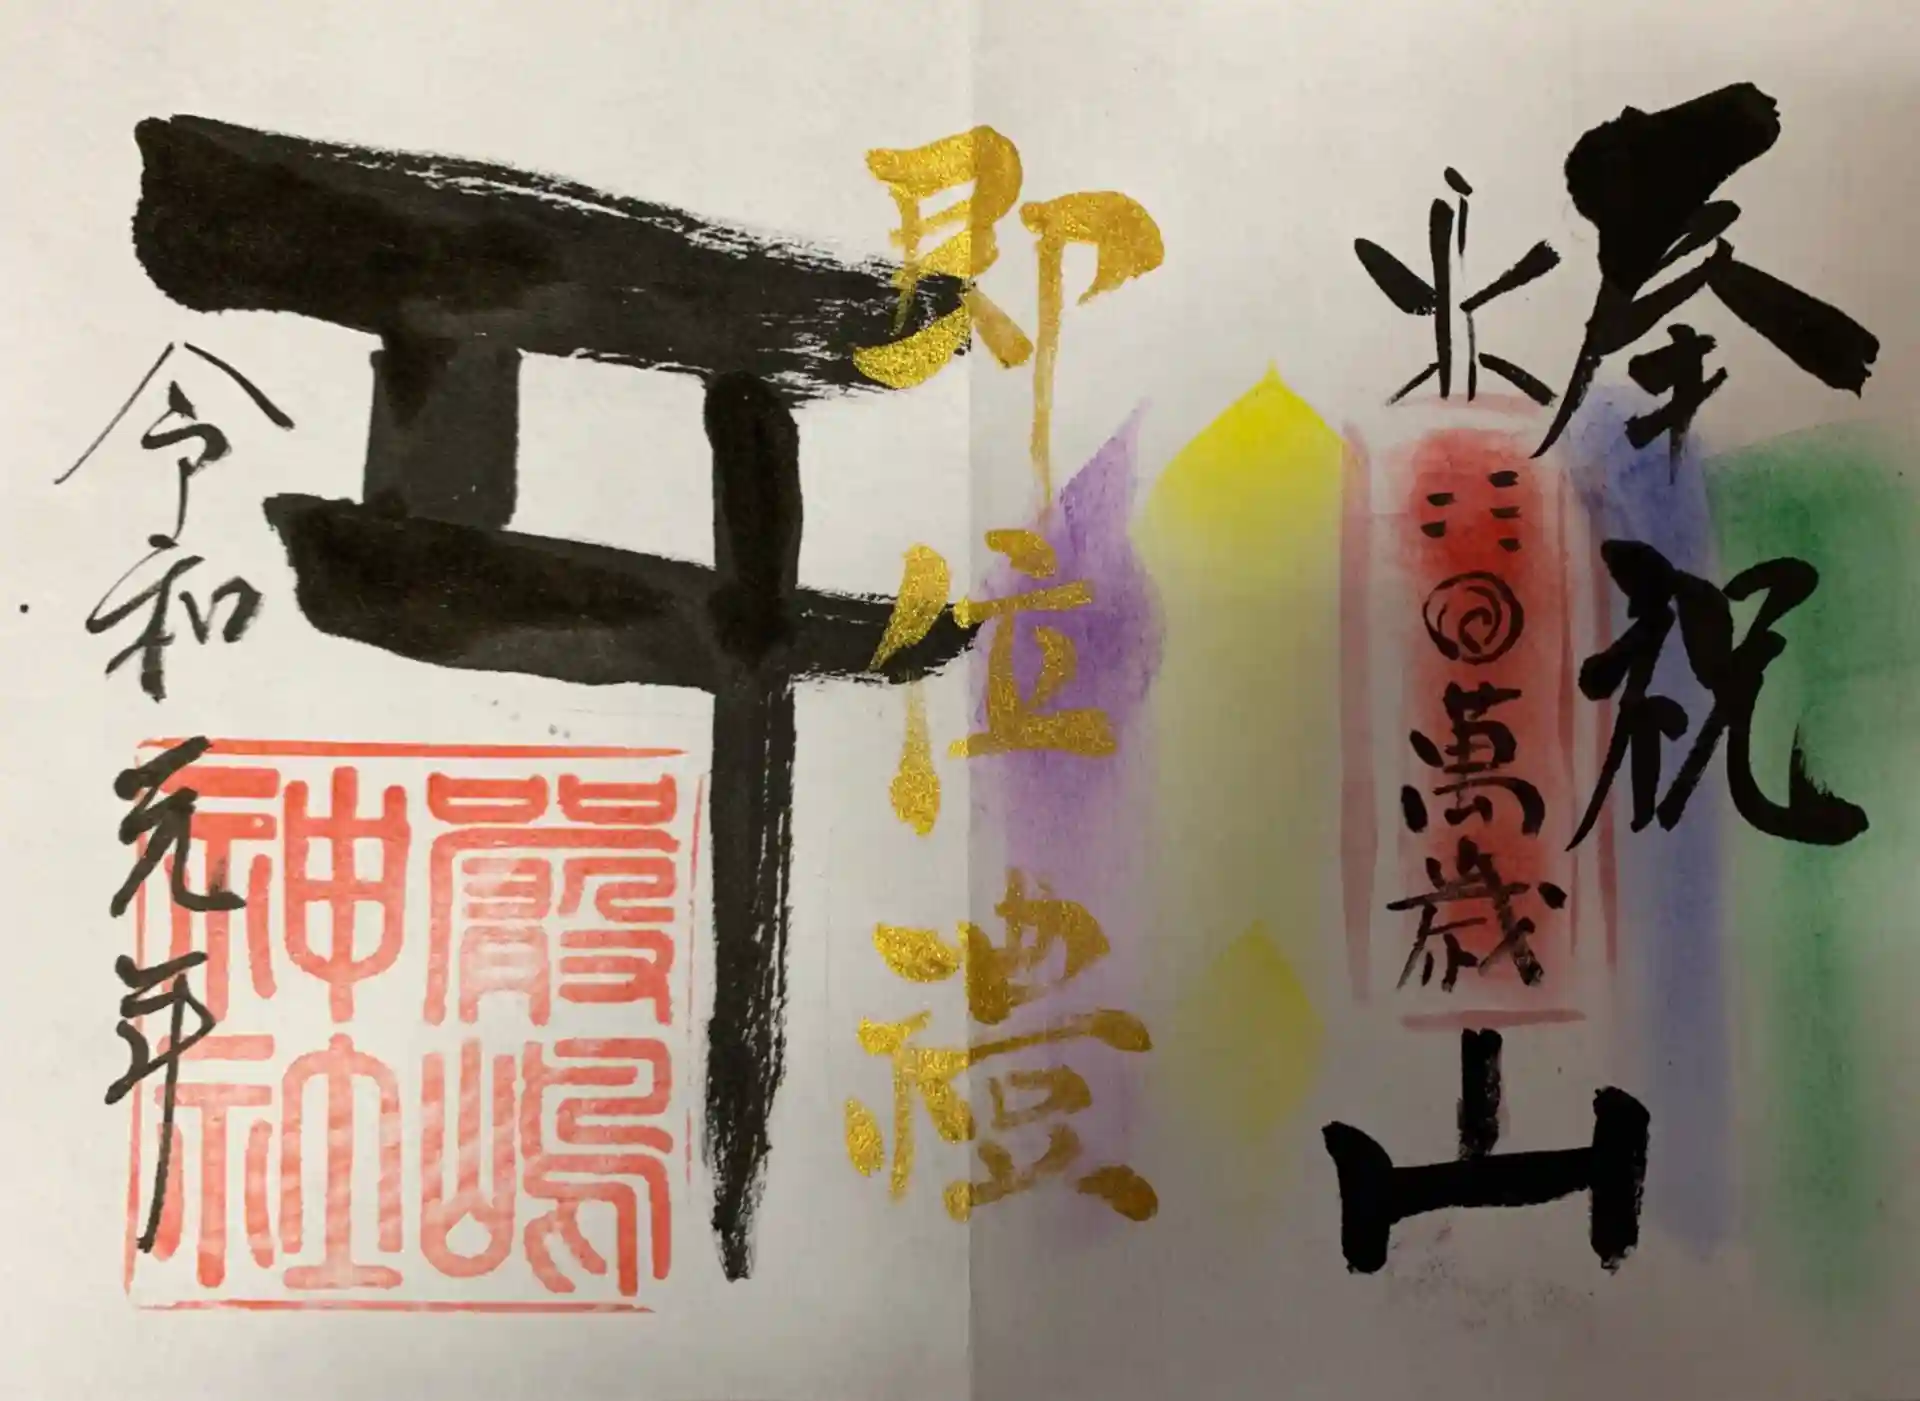 奉祝
萬歳
山
即位禮
嚴嶋
神社
令和元年